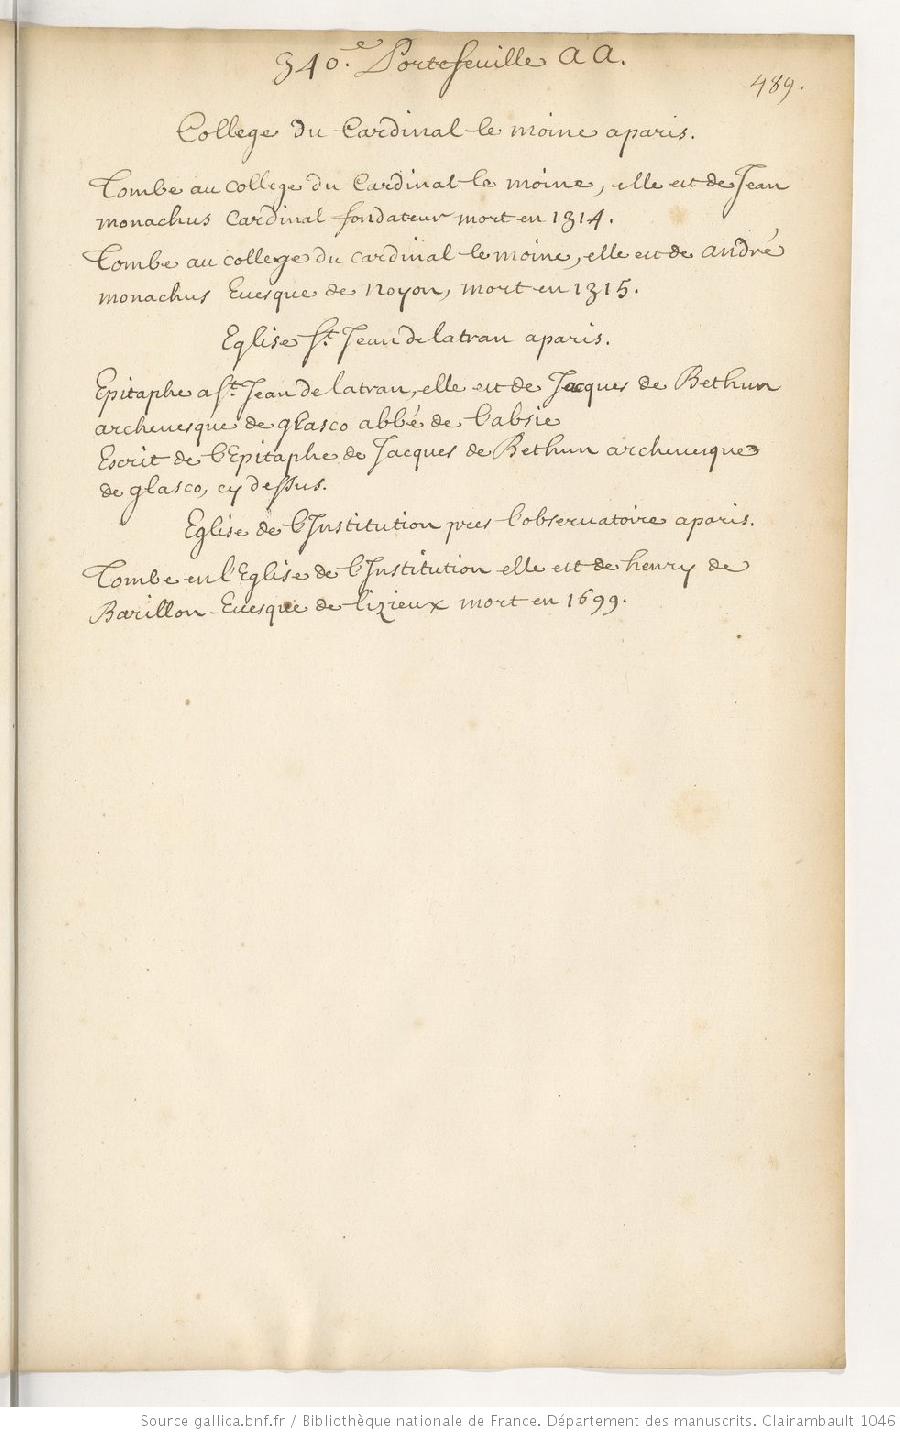 340.e Portefeuille AA.
489.
College du Cardinal le moine a paris.
Tombe au college du Cardinal le moine, elle est de Jean
monachus Cardinal fondateur mort en 1314.
Tombe au college du cardinal le moine, elle est de andré
monachus Euesque de Noyon, mort en 1315.
Eglise St. Jean de latran a paris.
Epitaphe a St. Jean de latran, elle est de Jacques de Bethun
archeuesque de glasco abbé de l'absie
Escrit de l'Epitaphe de Jacques de Bethun archeuesque
de glasco, cy dessus.
Eglise de l'Institution pres l'observatoire a paris.
Tombe en l'Eglise de l'Institution elle est de henry de
Barillon Euesque de lizieux mort en 1699.
Source gallica.bnf.fr / Bibliothèque nationale de France. Département des manuscrits. Clairambault 1046